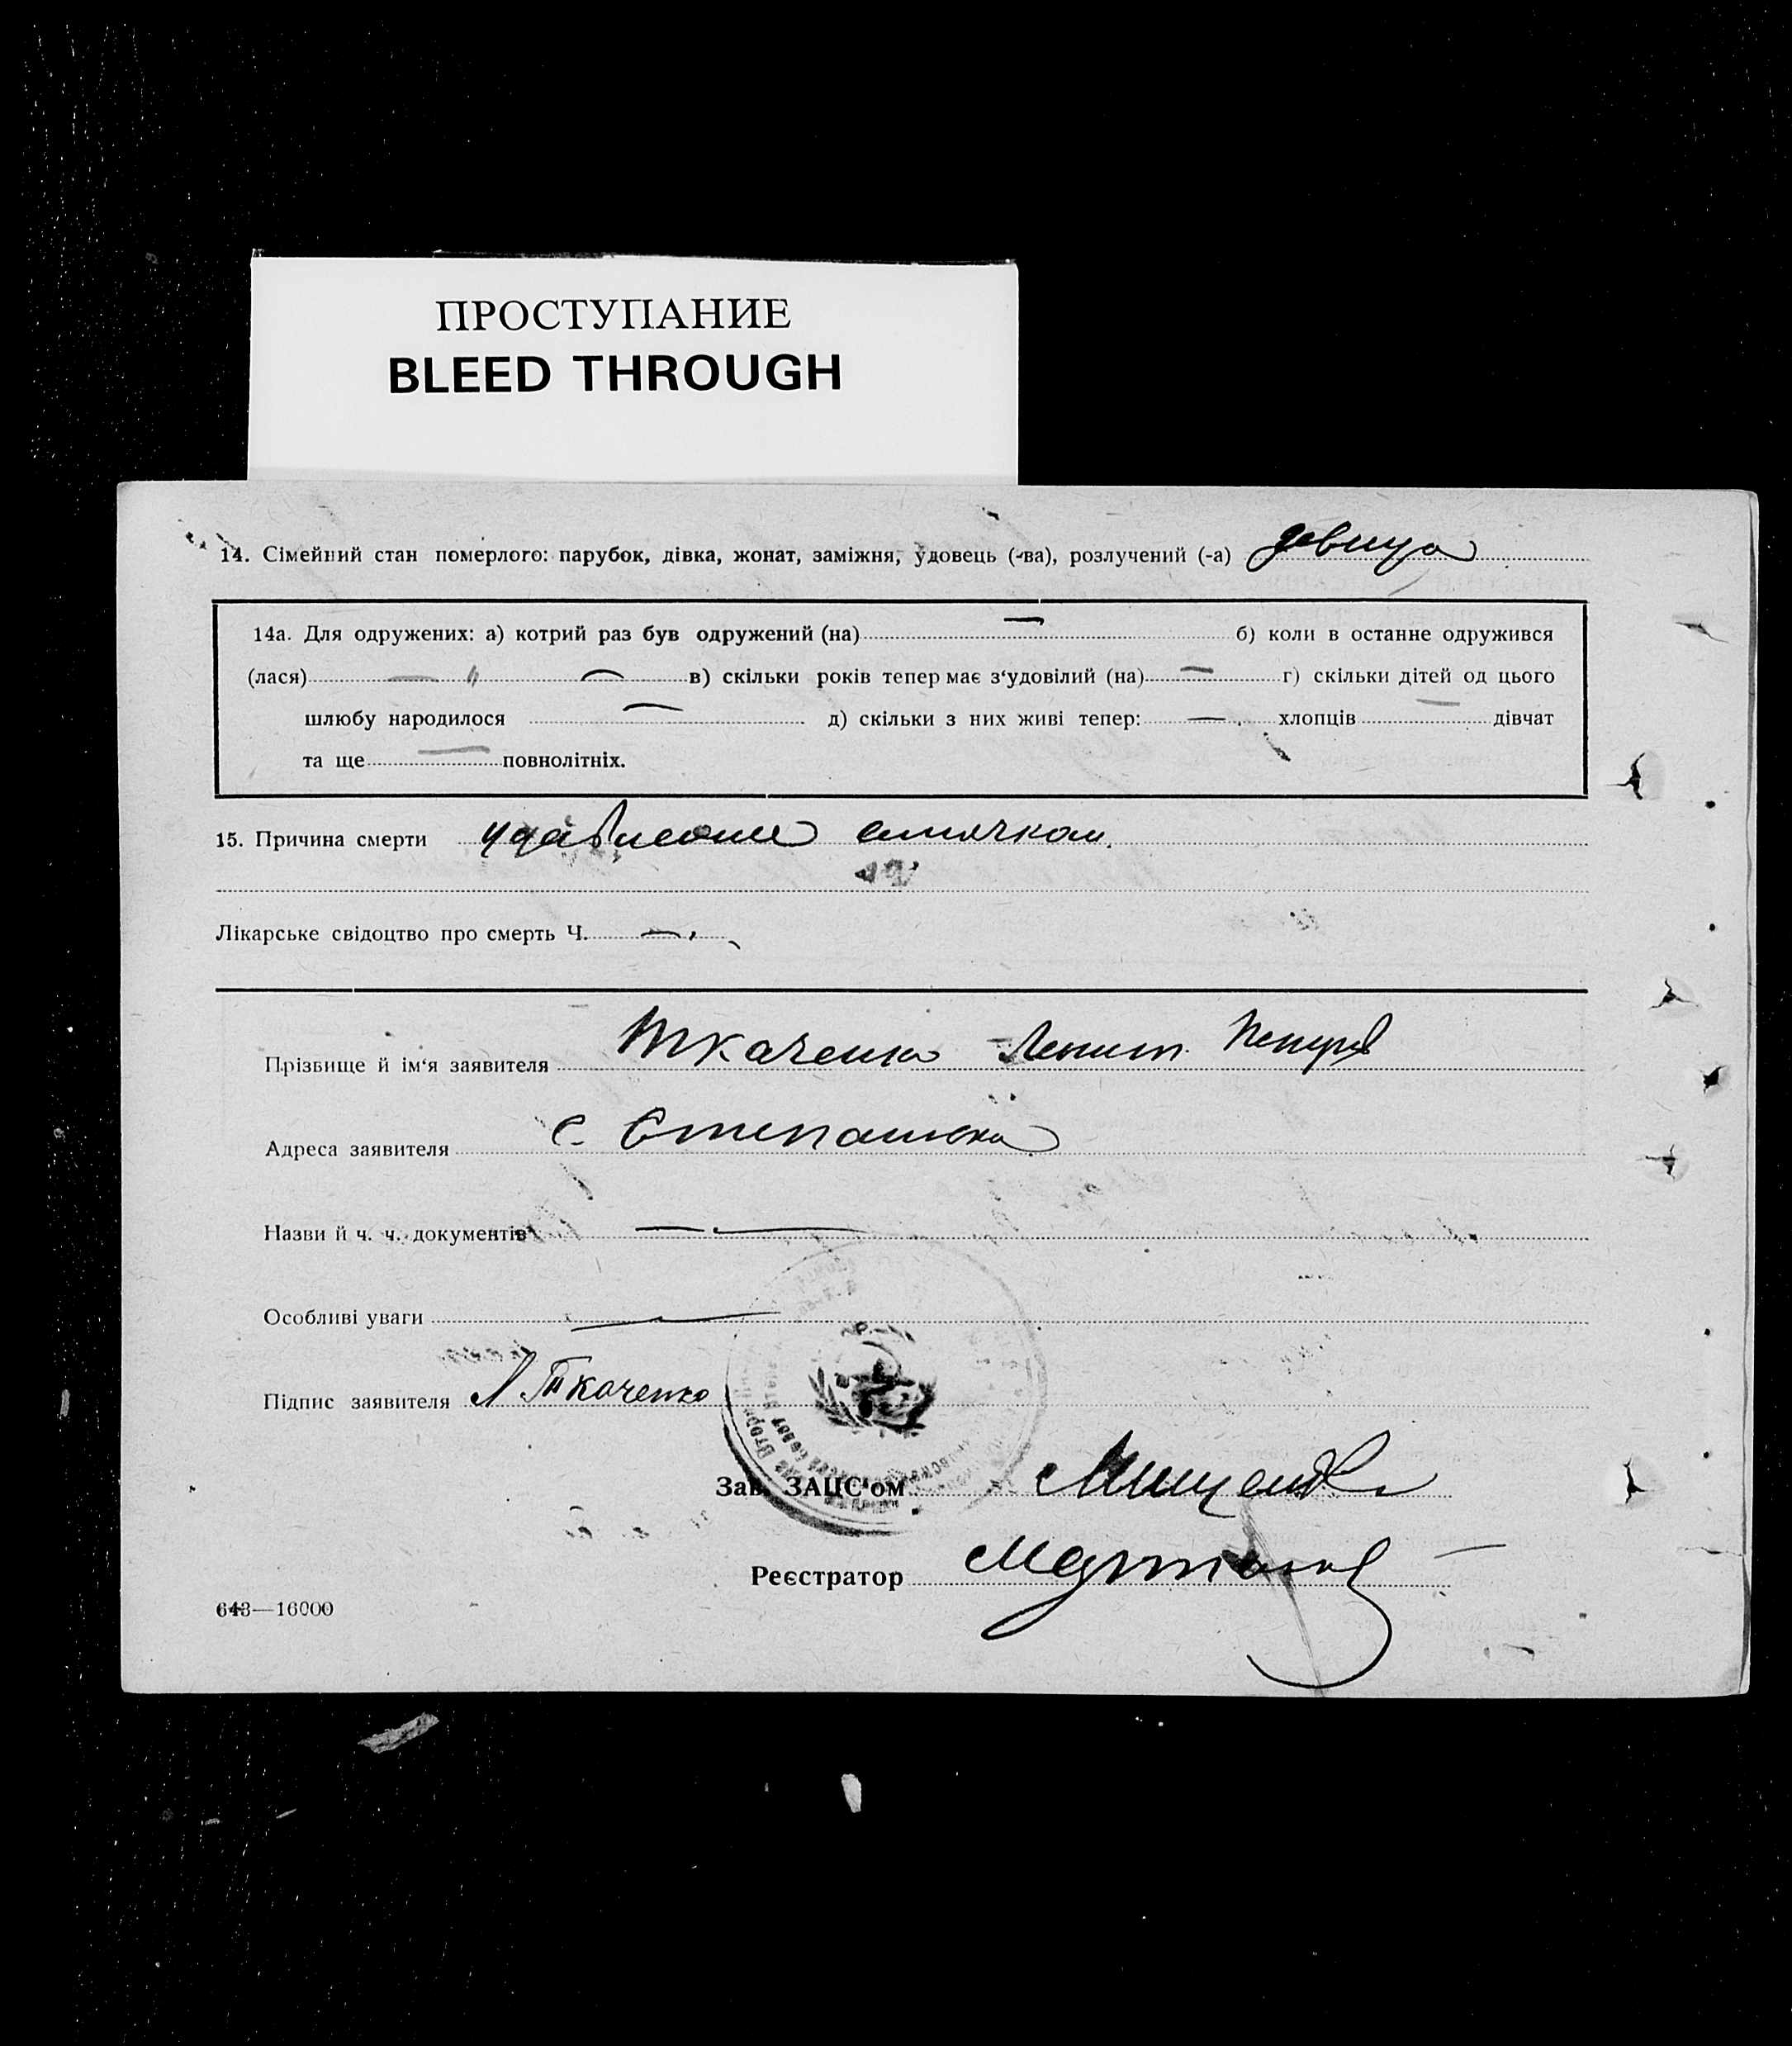 ПРОСТУПАНИЕ
BLEED THROUGH
14. Сімейний стан померлого: парубок, дівка, жонат, заміжня, удовець (-ва), розлучений (-а) девица
14а. Для одружених: а) котрий раз був одружений (на) — б) коли в останне одружився
(лася) — " — в) скільки років тепер має з'удовілий (на) — г) скільки дітей од цього
шлюбу народилося — д) скільки з них живі тепер: — хлопців — дівчат
та ще — повнолітніх.
15. Причина смерти удавление
Лікарське свідоцтво про смерть Ч. —
Прізвище й ім'я заявителя Ткаченко
Адреса заявителя с. Степановка
Назви й ч. ч. документів — —
Особливі уваги —
Підпис заявителя Л Ткаченко
Зав. ЗАЦС'ом
Реєстратор
643—16000